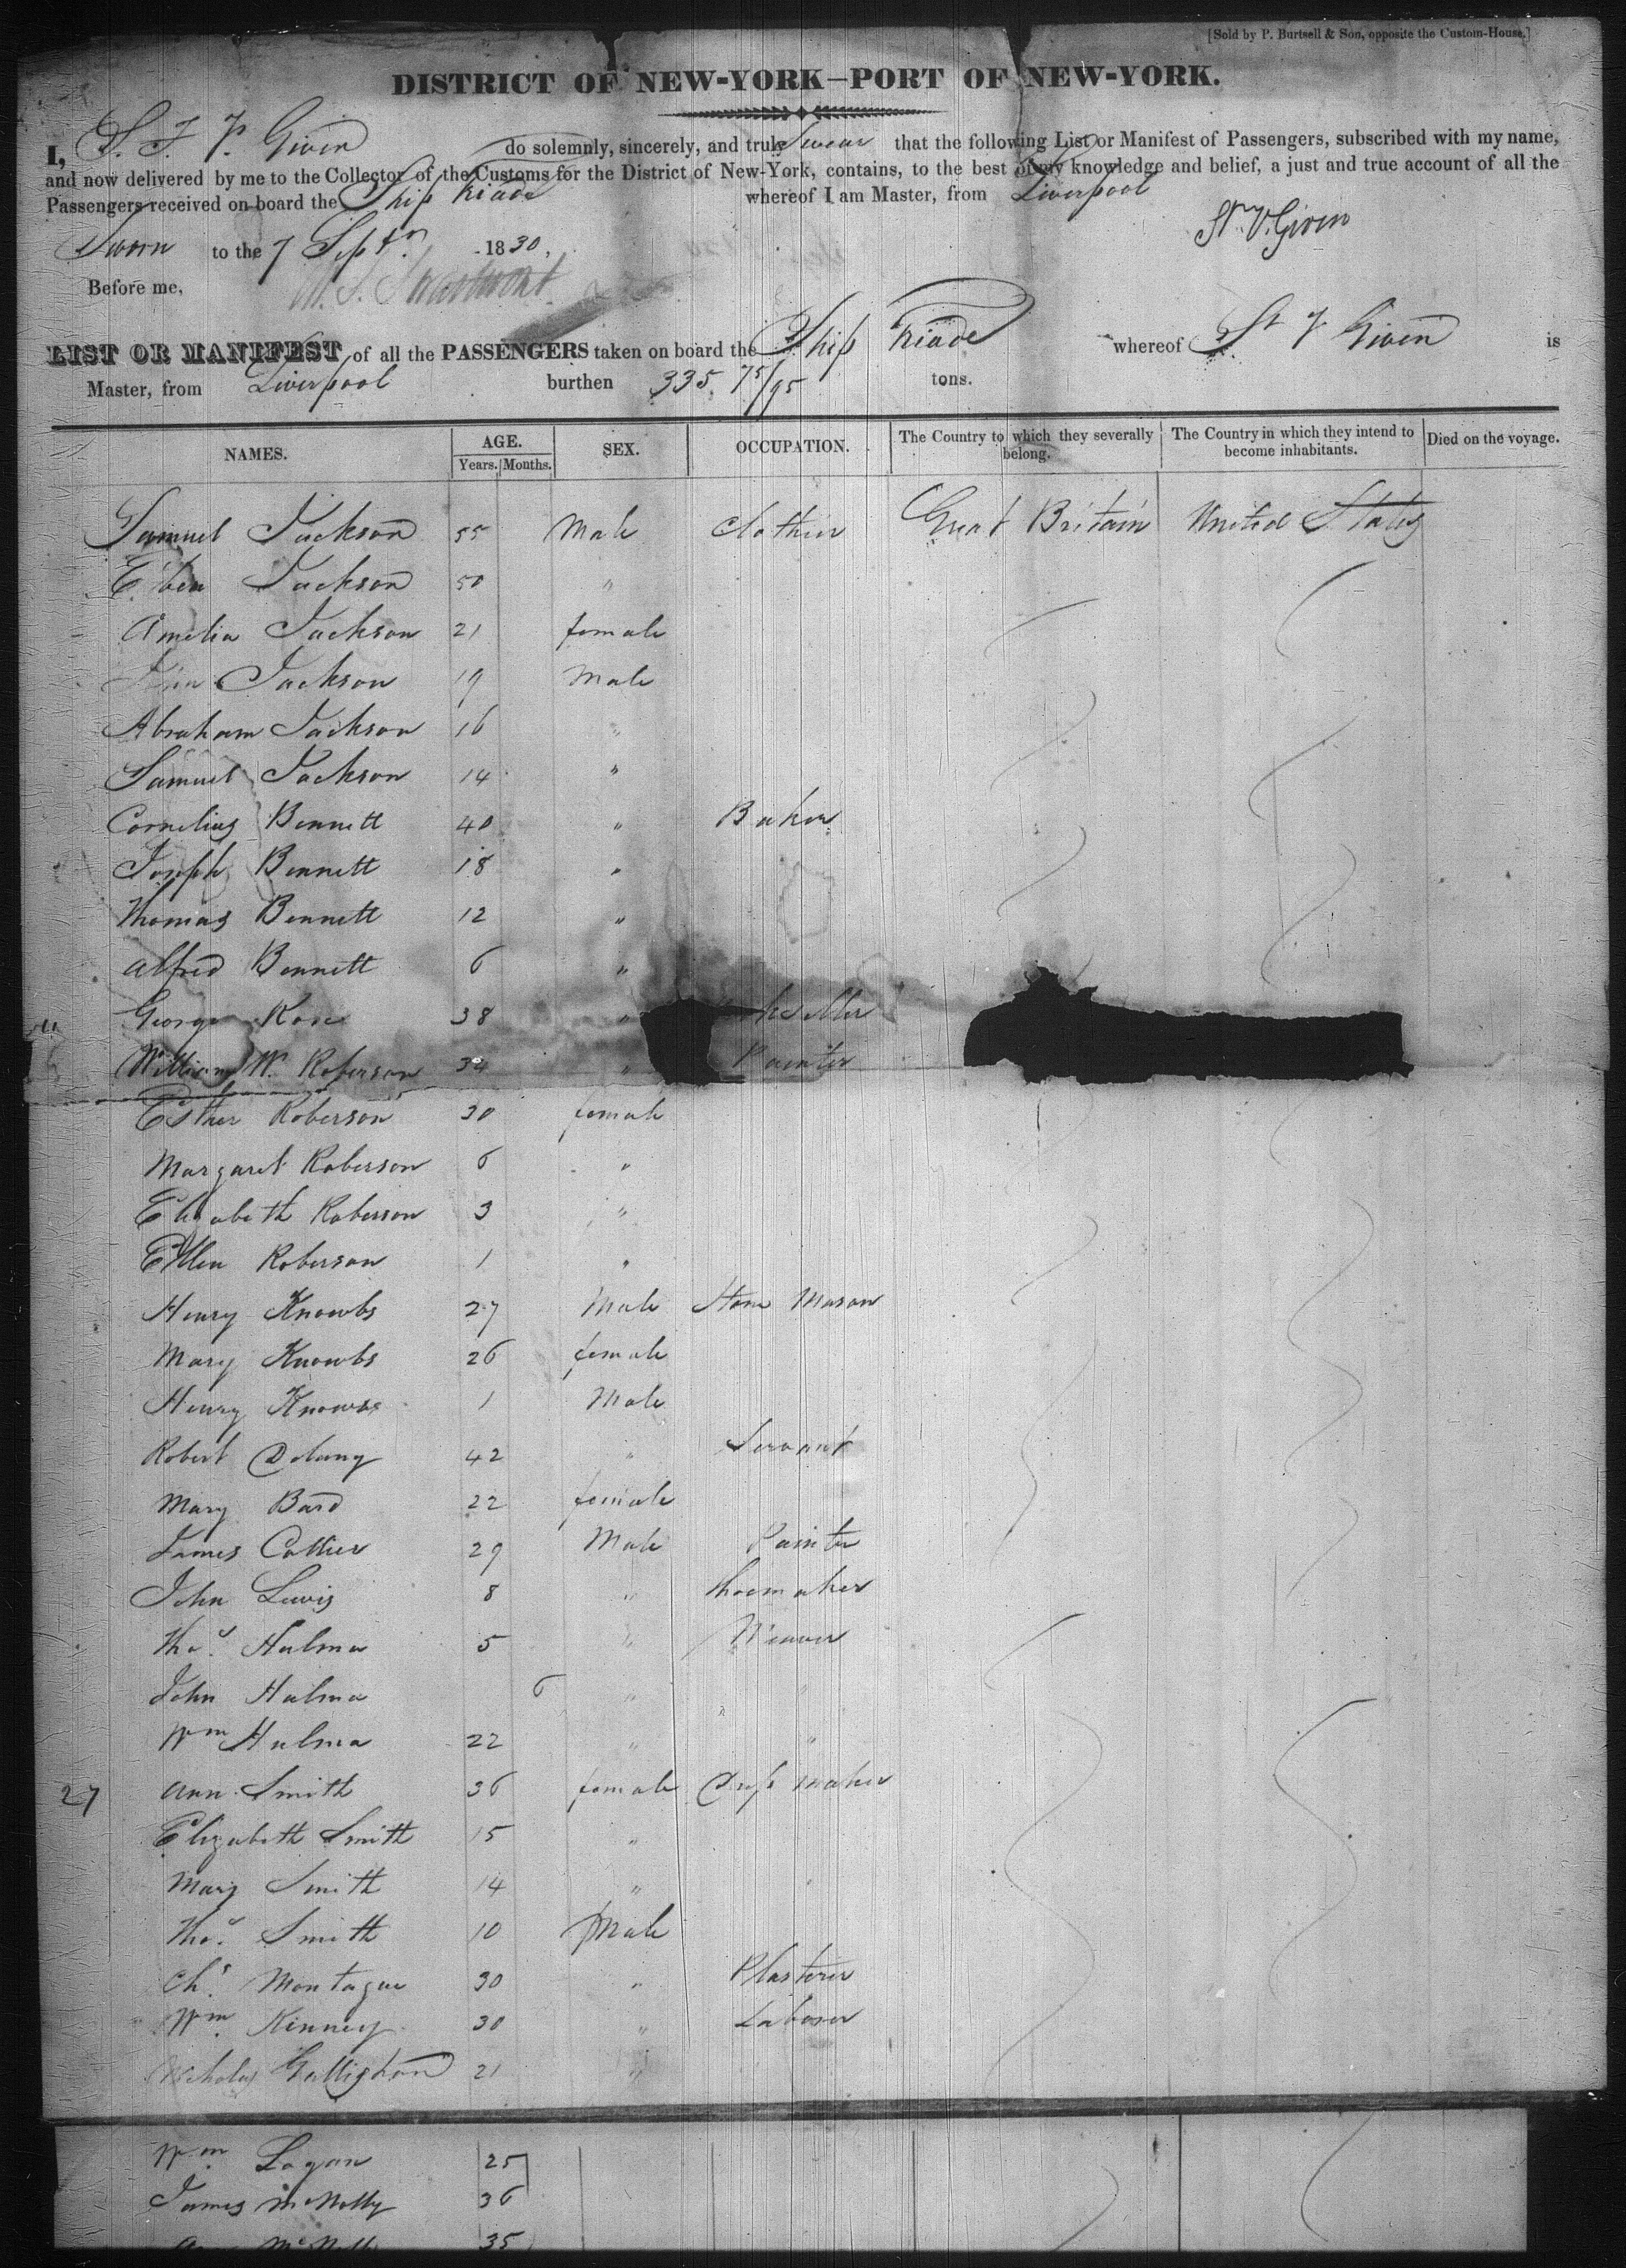 [Sold by P. Burtsell & Son, opposite the Custom-House.]
DISTRICT OF NEW-YORK—PORT OF NEW-YORK.
I, Given do solemnly, sincerely, and truly Swear that the following List or Manifest of Passengers, subscribed with my name,
and now delivered by me to the Collector of the Customs for the District of New-York, contains, to the best of my knowledge and belief, a just and true account of all the
Passengers received on board the Ship whereof I am Master, from Liverpool
Given
Sworn to the 7 Septr. 1830,
Before me,
LIST OR MANIFEST of all the PASSENGERS taken on board the Ship whereof Given is
Master, from Liverpool burthen 335 75/95 tons.
NAMES. AGE. SEX. OCCUPATION. The Country to which they severally belong. The Country in which they intend to become inhabitants. Died on the voyage.
Years. Months.
Samuel Jackson 55 Male Clothier Great Britain United States
Jackson 50 "
Amelia Jackson 21 female
John Jackson 19 Male
Abraham Jackson 16 "
Samuel Jackson 14 "
Cornelius Bennett 40 " Baker
Joseph Bennett 18 "
Thomas Bennett 12 "
Alfred Bennett 6 "
George Rose 38 "
William Wm. Roberson 34 " Painter
Esther Roberson 30 female
Margaret Roberson 6 "
Elizabeth Roberson 3 "
Ellen Roberson 1 "
Henry Knowbs 27 Male Stone Mason
Mary Knowbs 26 female
Henry Knowbs 1 Male
Robert Delany 42 " Servant
Mary Bard 22 female
James Collier 29 Male Painter
John Lewis 8 " Shoemaker
Thos. Hulma 5 " Weaver
John Hulma 6 " "
Wm Hulma 22 " "
27 Ann Smith 36 female Dress maker
Elizabeth Smith 15 "
Mary Smith 14 "
Thos. Smith 10 Male
Chs. Montague 30 " Plasterer
Wm. Kinney 30 " Laborer
Nicholas 21 "
Wm. Logan 25
James McNally 36
35